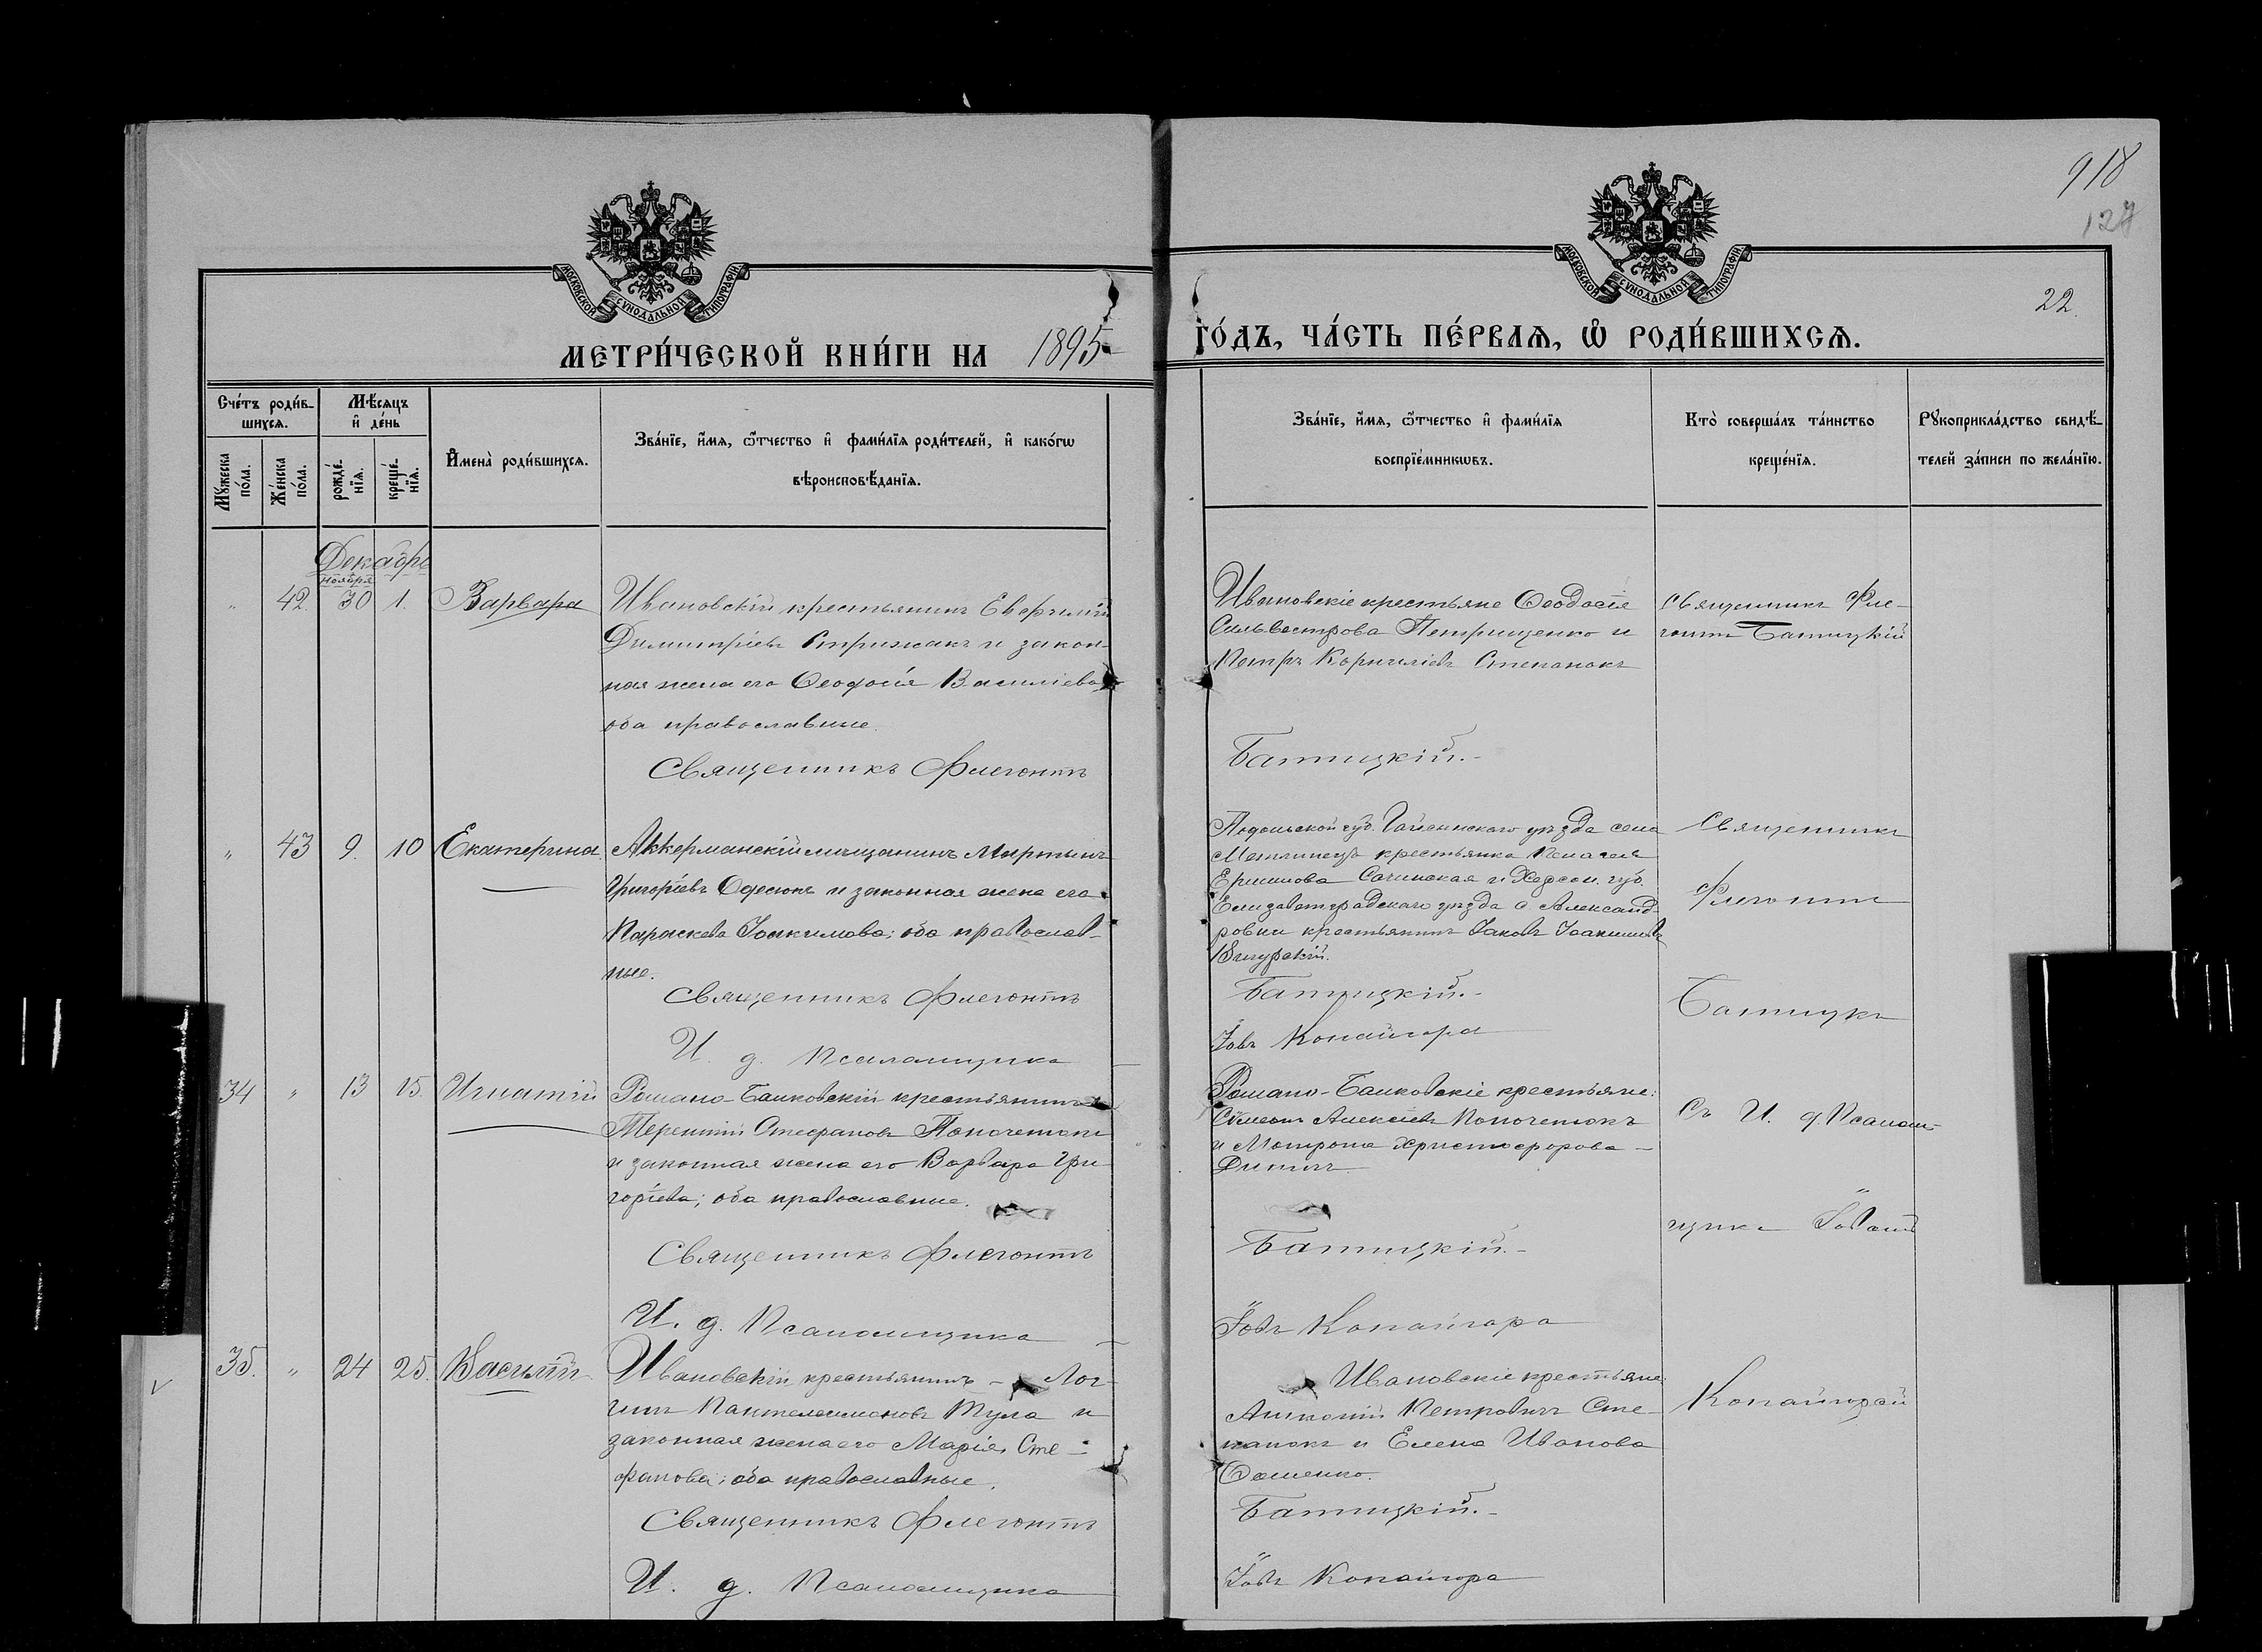 918
127
22.
МОСКОВСКОЙ СѴНОДАЛЬНОЙ ТИПОГРАФІИ
МОСКОВСКОЙ СѴНОДАЛЬНОЙ ТИПОГРАФІИ
МЕТРИ́ЧЕСКОЙ КНИ́ГИ НА 1895 ГО́ДЪ, ЧА́СТЬ ПЕ́РВАѦ, Ѡ҆ РОДИ́ВШИХСѦ.
Сче́тъ роди́в-
шихсѧ.
Мꙋ́жеска
по́ла.
Же́нска
по́ла.
Мѣ́сѧцъ
и҆ де́нь
рожде́-
нїѧ.
креще́-
нїѧ.
И҆мена̀ роди́вшихсѧ.
Зва́нїе, и҆́мѧ, ѻ҆́тчество и҆ фами́лїѧ роди́телей, и҆ како́гѡ
вѣроисповѣ́данїѧ.
Зва́нїе, и҆́мѧ, ѻ҆́тчество и҆ фами́лїѧ
воспрїе́мникѡвъ.
Кто̀ соверша́лъ та́инство
креще́нїѧ.
Рꙋкоприкла́дство свидѣ́-
телей за́писи по жела́нїю.
Декабрь
ноября
" 42. 30 1. Варвара
Ивановскій крестьянинъ Евфимій
Димитріевъ Стрижакъ и закон-
ная жена его Ѳеодосія Василіева,
оба православные.
Священникъ Флегонтъ
Ивановскіе крестьяне Ѳеодосія
Сильвестрова Петрищенко и
Петръ Корниліевъ Степанокъ
Батицкій.-
Священникъ Фле-
гонтъ Батицкій
" 43 9. 10 Екатерина
Аккерманскій мѣщанинъ Мартинъ
Григоріевъ Одесюкъ и законная жена его
Параскева Іоакимова; оба православ-
ные.
Священникъ Флегонтъ
И. д. Псаломщика
Подольской губ. Гайсинскаго уѣзда села
крестьянка
и Херсон. губ.
Елисаветградскаго уѣзда с. Александ-
ровки крестьянинъ Іаковъ Іоакимовъ
Батицкій.-
Іовъ Копайгора
Священникъ
Флегонтъ
Батицкъ
34 " 13 15. Игнатій
Романо-Балковскій крестьянинъ
Терентій Стефановъ Попочетокъ
и законная жена его Варвара Гри-
горіева; оба православные.
Священникъ Флегонтъ
И. д. Псаломщика
Романо-Балковскіе крестьяне:
Сѵмеонъ Алексіевъ Попочетокъ
и Мотрона Христофорова
Батицкій.-
Іовъ Копайгора
Съ И. д. Псалом-
щика Іовомъ
Копайгорой
35. " 24 25. Василій
Ивановскій крестьянинъ - Лог-
гинъ Пантелеимоновъ Тула и
законная жена его Марія Сте-
фанова; оба православные.
Священникъ Флегонтъ
И. д. Псаломщика
Ивановскіе крестьяне:
Антоній Петровичъ Сте-
панокъ и Елена Иванова
Батицкій.-
Іовъ Копайгора